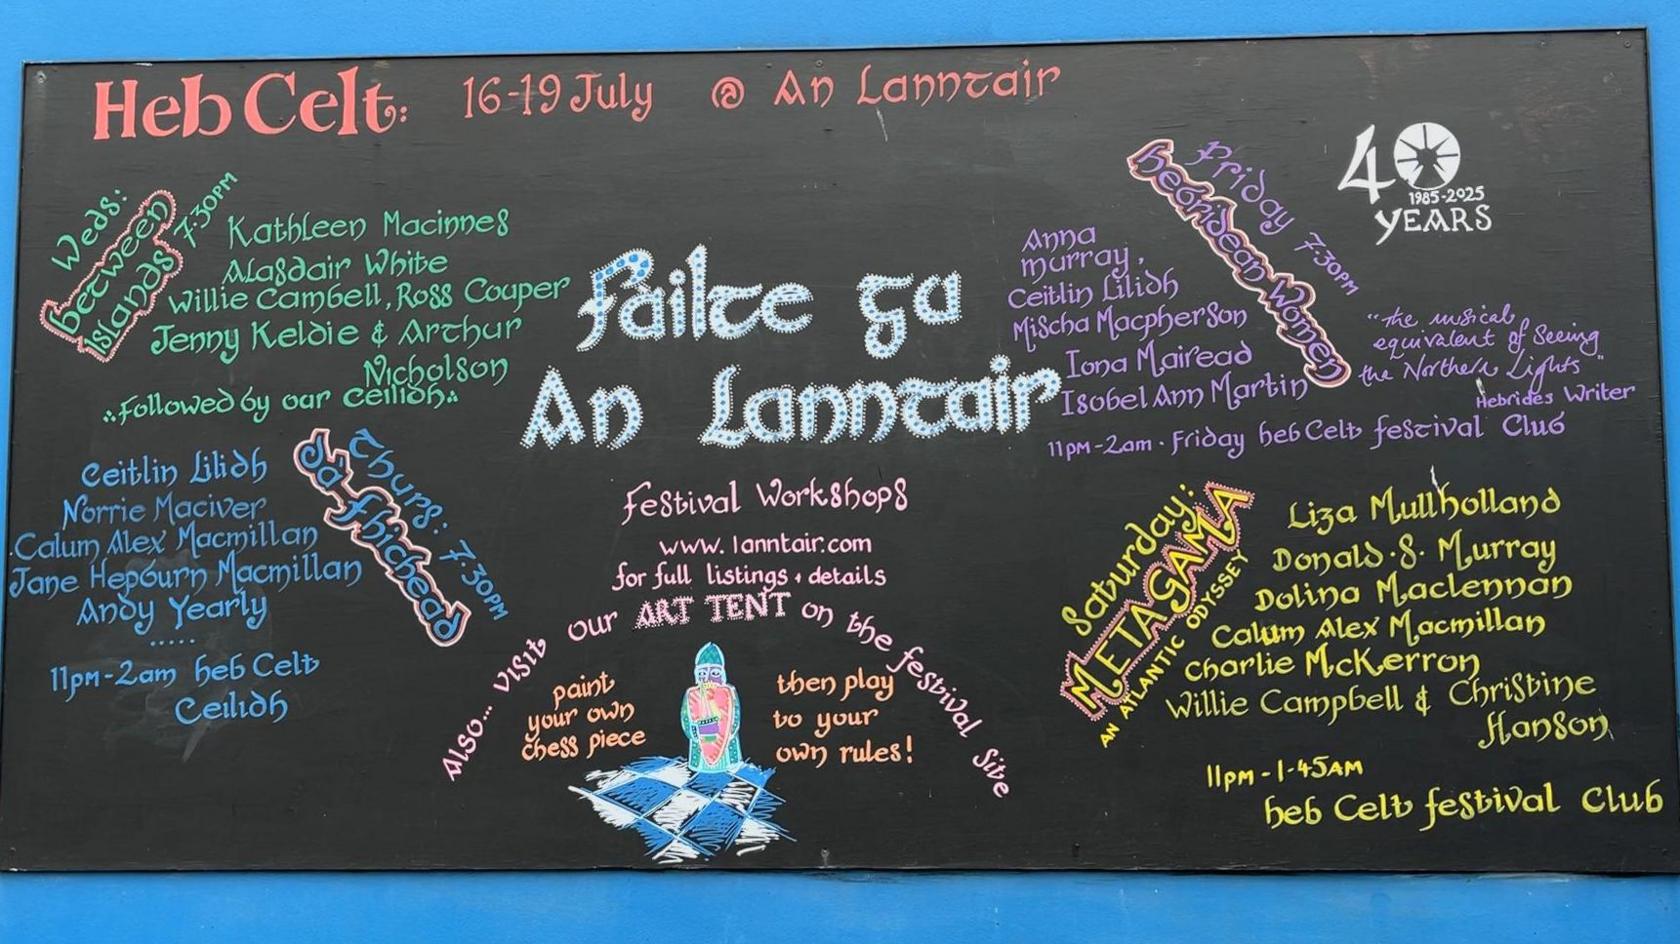 Heb Celt: 16-19 July @ An Lanntair
Weds:
between
islands
7.30PM
Kathleen Macinnes
Alasdair White
Willie Cambell, Ross Couper
Jenny Keldie & Arthur
Nicholson
Followed by our ceilidh
Ceitlin Lilidh
Norrie Maciver
Calum Alex Macmillan
Jane Hepburn Macmillan
Andy Yearly
.....
11pm-2am heb Celt
Ceilidh
Thurs: 7.30PM
Dà-fhichead
Failte gu
An Lanntair
Festival Workshops
www.lanntair.com
for full listings + details
Also... visit our ART TENT on the festival site
paint
your own
chess piece
then play
to your
own rules!
Friday 7.30PM
hebridean Women
Anna
murray,
Ceitlin Lilidh
Mischa Macpherson
Iona Mairead
Isobel Ann Martin
11pm-2am · Friday heb Celt festival Club
40
1985-2025
YEARS
"the musical
equivalent of Seeing
the Northern Lights"
Hebrides Writer
Saturday:
METAGAMA
AN ATLANTIC ODYSSEY
Liza Mullholland
Donald·S·Murray
Dolina Maclennan
Calum Alex Macmillan
Charlie McKerron
Willie Campbell & Christine
Hanson
11pm-1-45AM
heb Celt festival Club